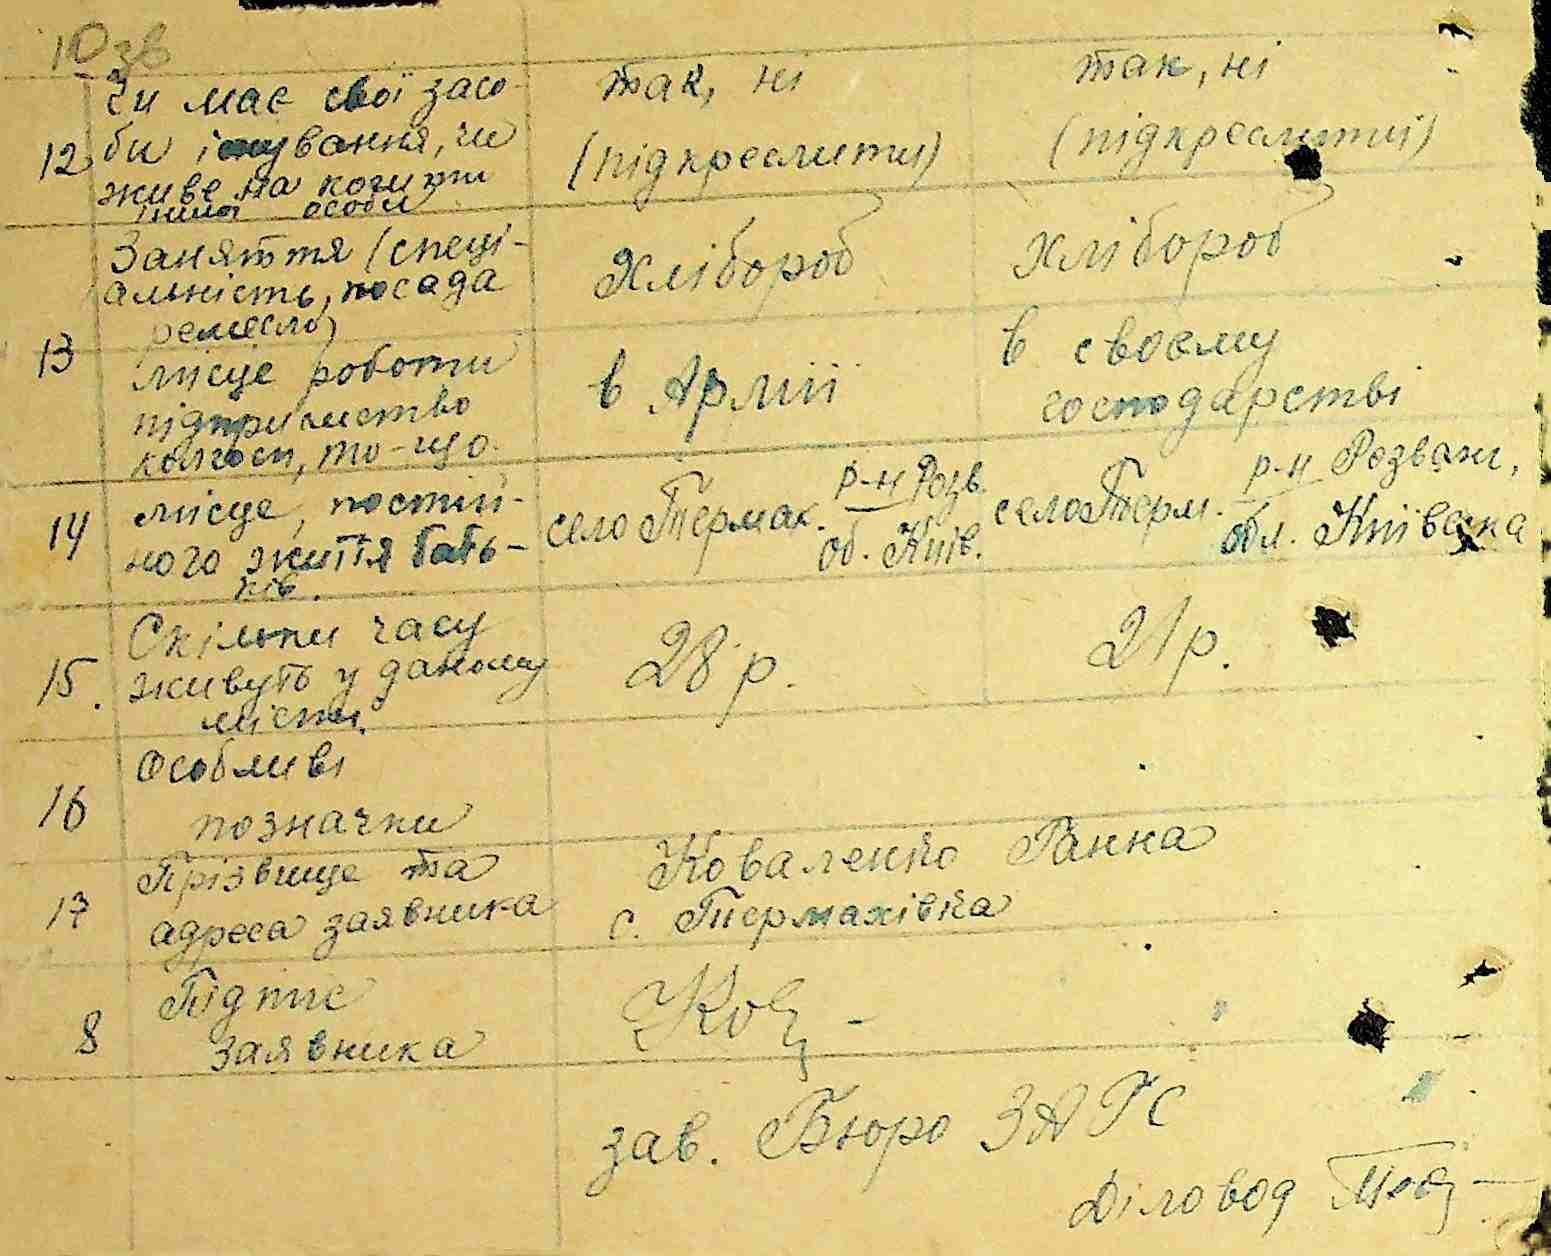 10зв
Чи має свої засо- так, ні так, ні
12 би існування, чи (підкреслити) (підкреслити)
живе на кошти
іншої особи
Заняття (спеці- Хлібороб Хлібороб
альність, посада
ремесло)
13 місце роботи в Армії в своєму
підприємство господарстві
колгосп, то-що.
14 місце, постій- село Термах. р-н Розв. село Терм. р-н Розваж,
ного життя бать- об. Київ. обл. Київска
ків.
Скільки часу
15. живуть у даному 28 р. 21 р.
місти.
Особливі
16 позначки
Прізвище та Коваленко Ганна
17 адреса заявника с. Термахівка
Підпис
8 заявника Ков
зав. Бюро ЗАГС
Діловод